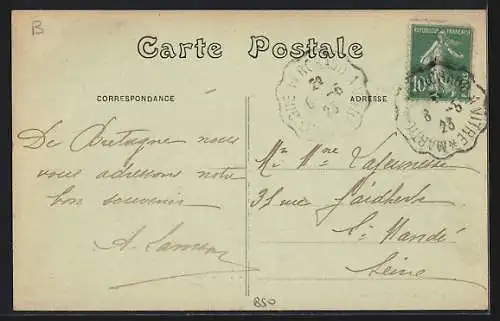 Carte Postale
REPUBLIQUE FRANÇAISE
10
CORRESPONDANCE
ADRESSE
De Bretagne nous
vous adressons notre
bon souvenir
Mr Mme Lajeunesse
31 rue Faidherbe
St Mandé
Seine
850